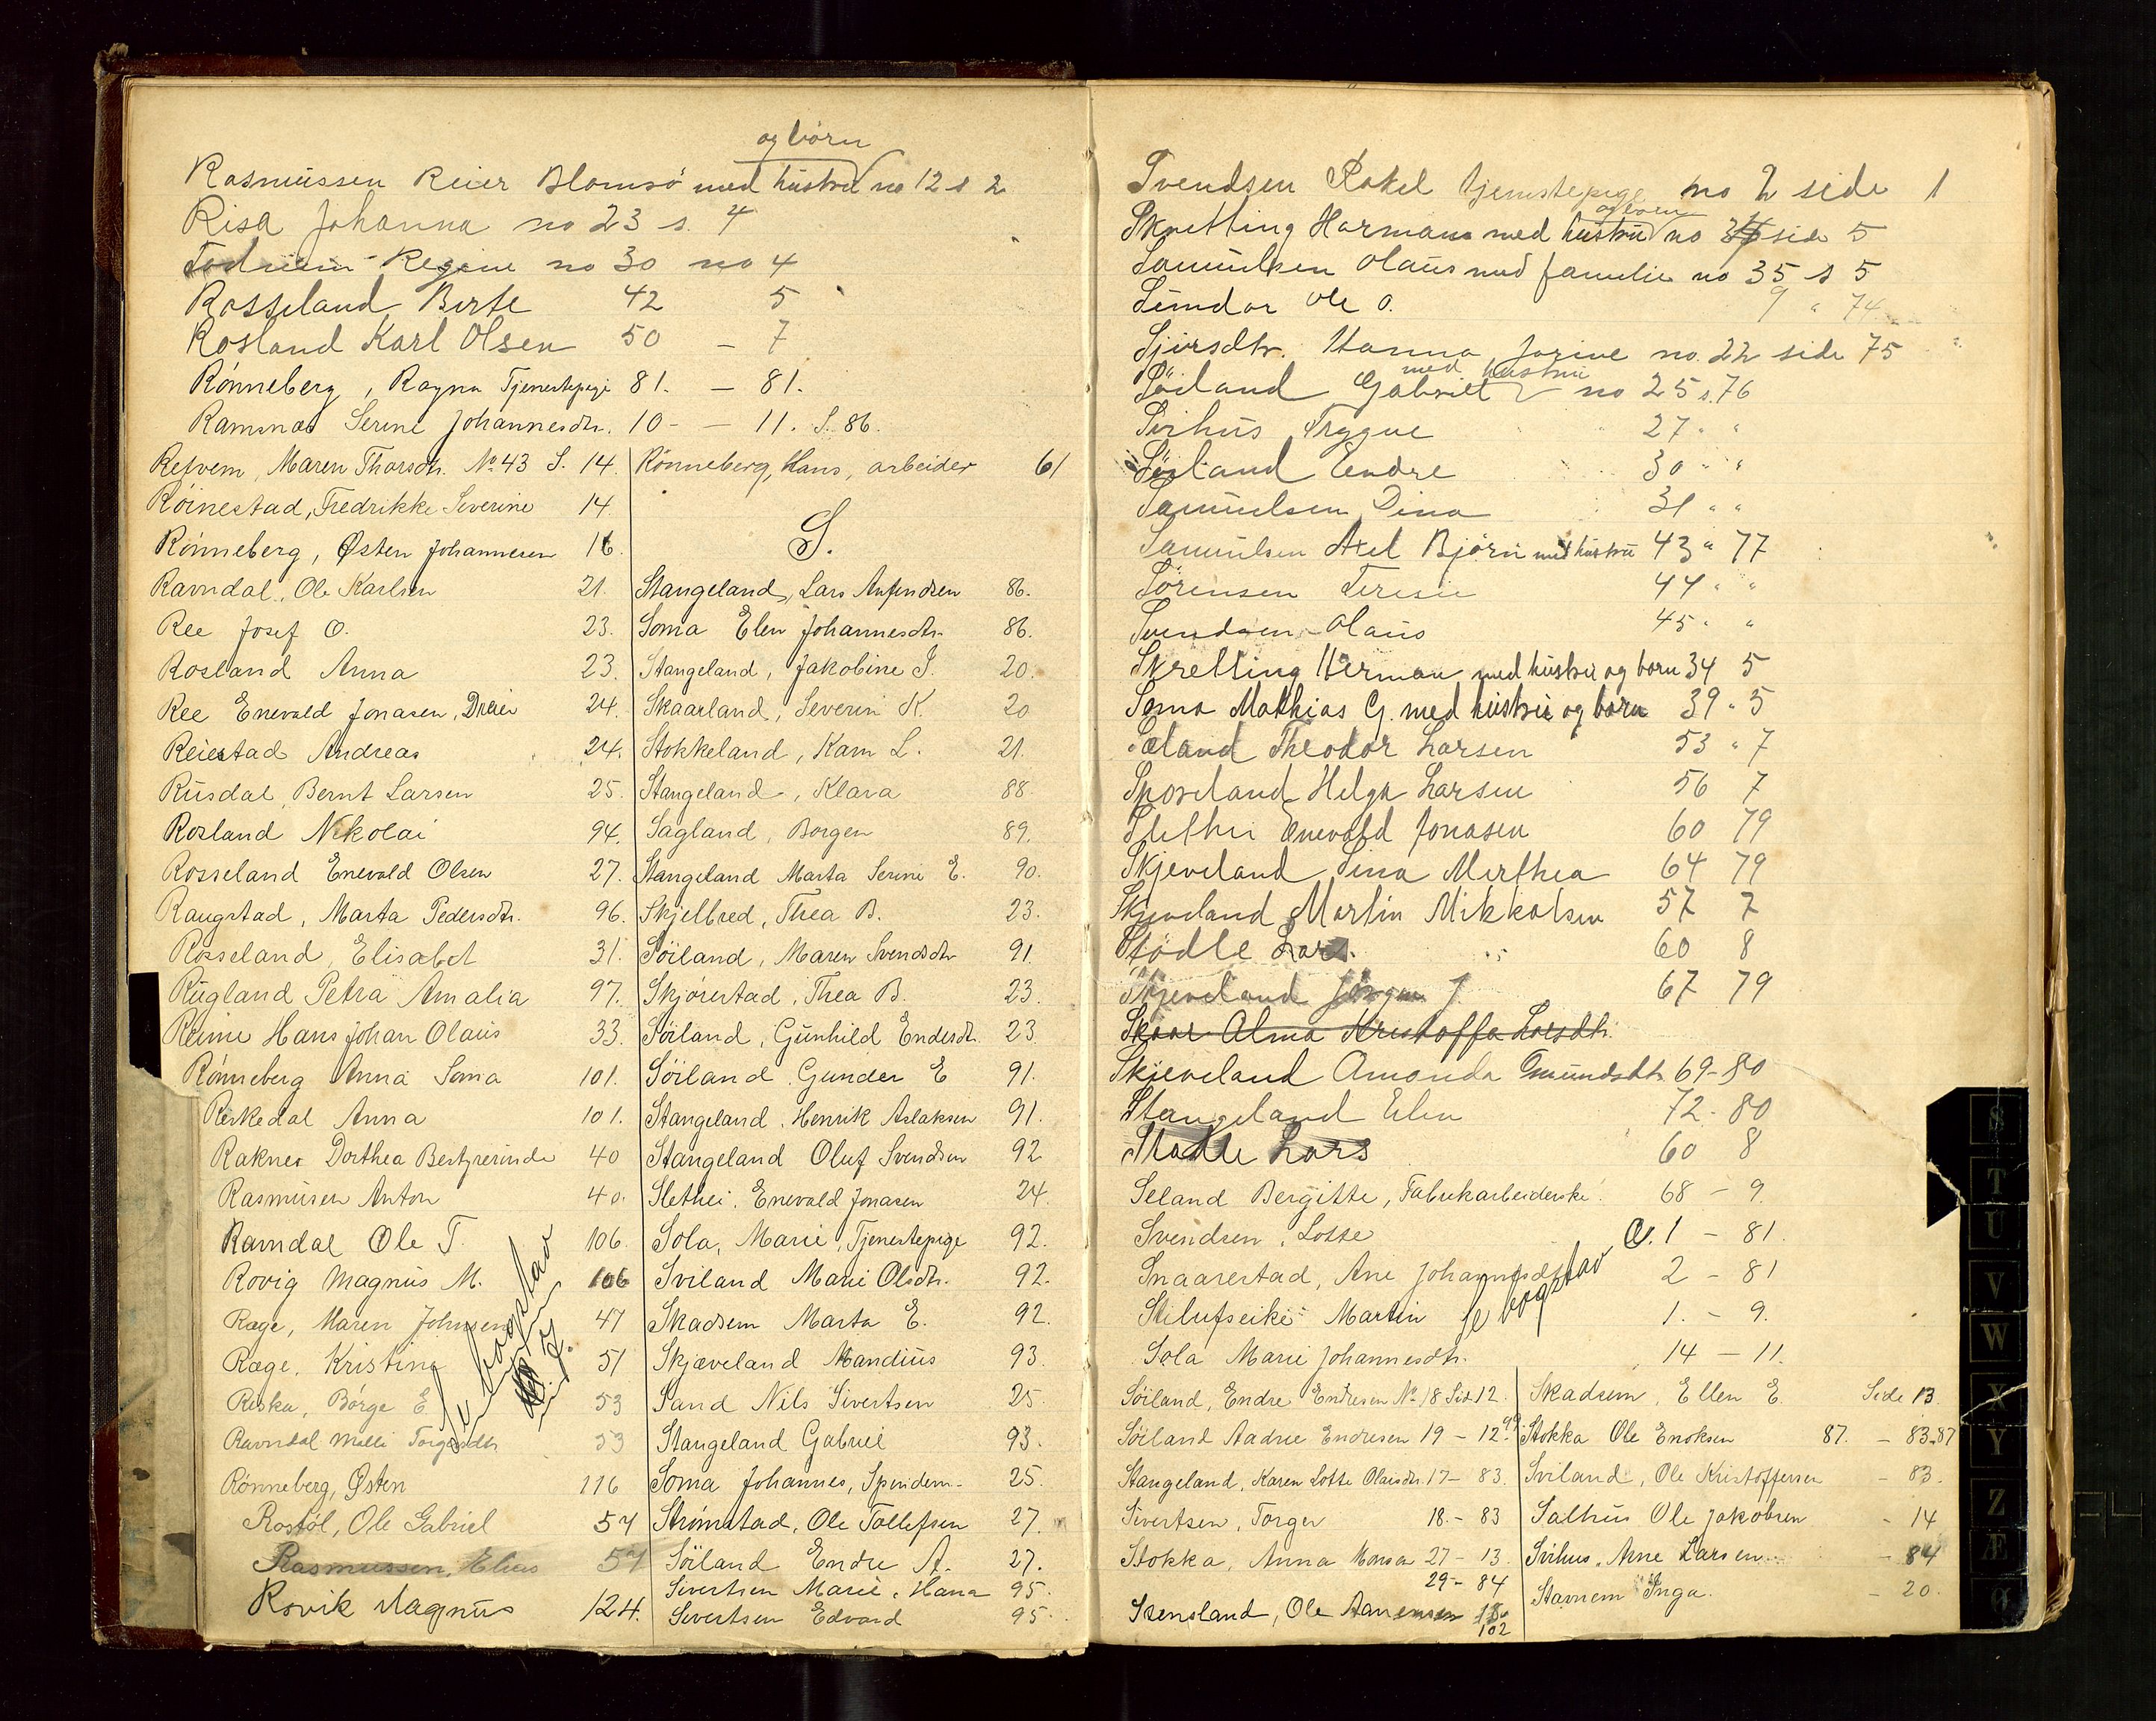 og børn
Rasmussen Reier Blomsø med hustru no 12 s 2
Risa Johanna no 23 s. 4
Regine no 30 no 4
Rosseland Berte 42 5
Rosland Karl Olsen 50 – 7
Rønneberg, Ragna Tjenestepige 81. – 81.
Ramsnæs Serine Johannesdtr. 10 – – 11. S. 86.
Refvem, Maren Thorsdtr. No 43 S. 14.
Røinestad, Fredrikke Severine 14.
Rønneberg, Østen Johannesen 16.
Ravndal, Ole Karlsen 21.
Ree Josef O. 23.
Rosland Anna 23.
Ree Enevald Jonasen, Dreier 24.
Reiestad Andreas 24.
Rusdal, Bernt Larsen 25.
Rosland Nikolai 94.
Rosseland Enevald Olsen 27.
Raugstad, Marta Pedersdtr. 96.
Rosseland, Elisabet 31.
Rugland Petra Amalia 97.
Reime Hans Johan Olaus 33.
Rønneberg Anna Soma 101.
Reskedal Anna 101.
Raknes Dorthea Bestyrerinde 40
Rasmusen Anton 40.
Ravndal Ole T. 106.
Rovig Magnus M. 106
Rage, Maren Johnsen 47
Ræge, Kristine 51
Reska, Børge E 53
Ravndal Malli Torgersdtr. 53
Rønneberg, Østen 116
Rostøl, Ole Gabriel 57
Rasmussen, Elias 57
Rovik Magnus 124.
Se bogstav
Rønneberg, Hans, arbeider 61
S.
Stangeland, Lars Anfindsen 86.
Soma Elen Johannesdtr. 86.
Stangeland, Jakobine J. 20.
Skaarland, Severin K. 20
Stokkeland, Karn L. 21.
Stangeland, Klara 88.
Sagland, Borgen 89.
Stangeland Marta Serine E. 90.
Skjelbred, Thea B. 23.
Søiland, Maren Svendsdtr 91.
Skjørestad, Thea B. 23.
Søiland, Gunhild Endesdtr. 23
Søiland Gunder E 91.
Stangeland, Henrik Aslaksen 91.
Stangeland Oluf Svendsen 92
Slethei, Enevald Jonasen 24.
Sola, Marie, Tjenestepige 92.
Sviland Marie Olsdtr. 92.
Skadsem Marta E. 92.
Skjæveland Mandius 93.
Sand Nils Sivertsen 25.
Stangeland Gabriel 93.
Soma Johannes, Spendem. 25.
Strømstad, Ole Tollefsen 27.
Søiland Endre A. 27.
Sivertsen Marie, Hana 95.
Sivertsen Edvard 95.
Svendsen Rakel tjenestepige no 2 side 1
og børn
Skretting Harman med hustru no side 5
Samuelsen Olaus med familie no 35 s 5
Sundar Ole O. 9 " 74
Sjursdtr. Hanna Jorine no. 22 side 75
med hustru
Søiland Gabriel no 25 s. 76
Svihus Trygve 27 " "
Søiland Endre 30 " "
Samuelsen Dina 31 " "
Samuelsen Axel Bjørn med hustru 43 " 77
Sørensen Teresie 44 " "
Svendsen Olaus 45 " "
Skretting Herman med hustru og born 34 5
Soma Mathias G. med hustru og børn 39 " 5
Sæland Theodor Larsen 53 " 7
Sporeland Helga Larsen 56 7
Slethei Enevald Jonasen 60 79
Skjeveland Sina Merthea 64 79
Skjeveland Martin Mikkalsen 57 7
Stødle Lars. 60 8
Skjeveland Jörgen J 67 79
Skaar Alma Kristoffa Larsdtr.
Skjeveland Amanda Omundsdtr 69 – 80
Stangeland Elen 72 – 80
Stødle Lars 60 8
Seland Bergitte, Fabrikarbeiderske. 68 – 9.
Svendsen, Lotte 1 – 81.
Snaarestad, Ane Johannesdtr 2 – 81
Se bogstav
Martin 1. – 9.
Sola Marie Johannesdtr. 14 – 11.
Søiland, Endre Endresen No 18 Side 12.
Søiland Aadne Endresen 19 – 12
Stangeland, Karen Lotte Olausdtr. 17 – 83.
Sivertsen, Torger 18. – 83
Stokka, Anna Monsen 27 – 13.
29 – 84
Stensland, Ole Aanensen 18.
102
Skadsem, Ellen E. Side 13.
Stokka Ole Enoksen 87. – 83.87
Sviland, Ole Kristoffersen – 83.
Salhus Ole Jakobsen – 14
Svihus, Arne Larsen – 84
Stavnem Inga. – 20.
S
T
U
V
W
X
Y
Z
Æ
Ø